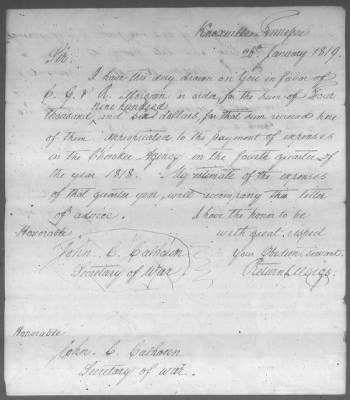 Knoxville Tennessee
26th January 1819.
Sir.
I have this day drawn on You in favor of
C. G. & A. Morgan an order, for the sum of Four
nine hundred
thousand, and six dollars, for that sum received here
of them. Appropriated to the payment of expenses
in the Cherokee Agency in the fourth quarter of
the year 1818. My estimate of the expenses
of that quarter year, will accompany this letter
of advice. I have the honor to be
Honorable with great respect
John C. Calhoun Your Obedient Servant
Secretary of War Return J. Meigs
Honorable
John C. Calhoun
Secretary of war